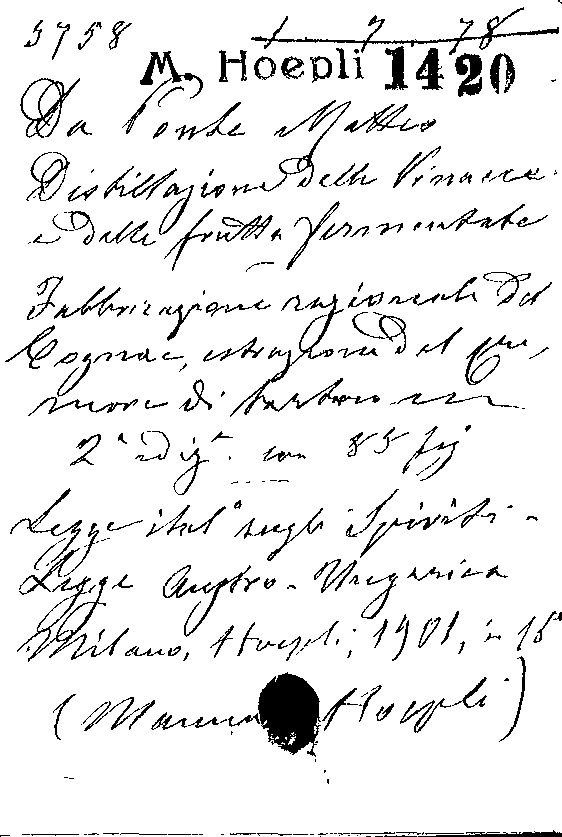 3758 1 7 78
M. Hoepli 1420
Da Ponte Matteo
Distillazione delle Vinacce
e delle frutta fermentate
Fabbricazione razionale del
Cognac, estrazione del cre,
more di tartaro
2ª ediz. con 85 fig
Legge ital.ª sugli Spiriti -
Legge Austro-Ungarica
Milano, Hoepli, 1901, in 16°
(Manu Hoepli)